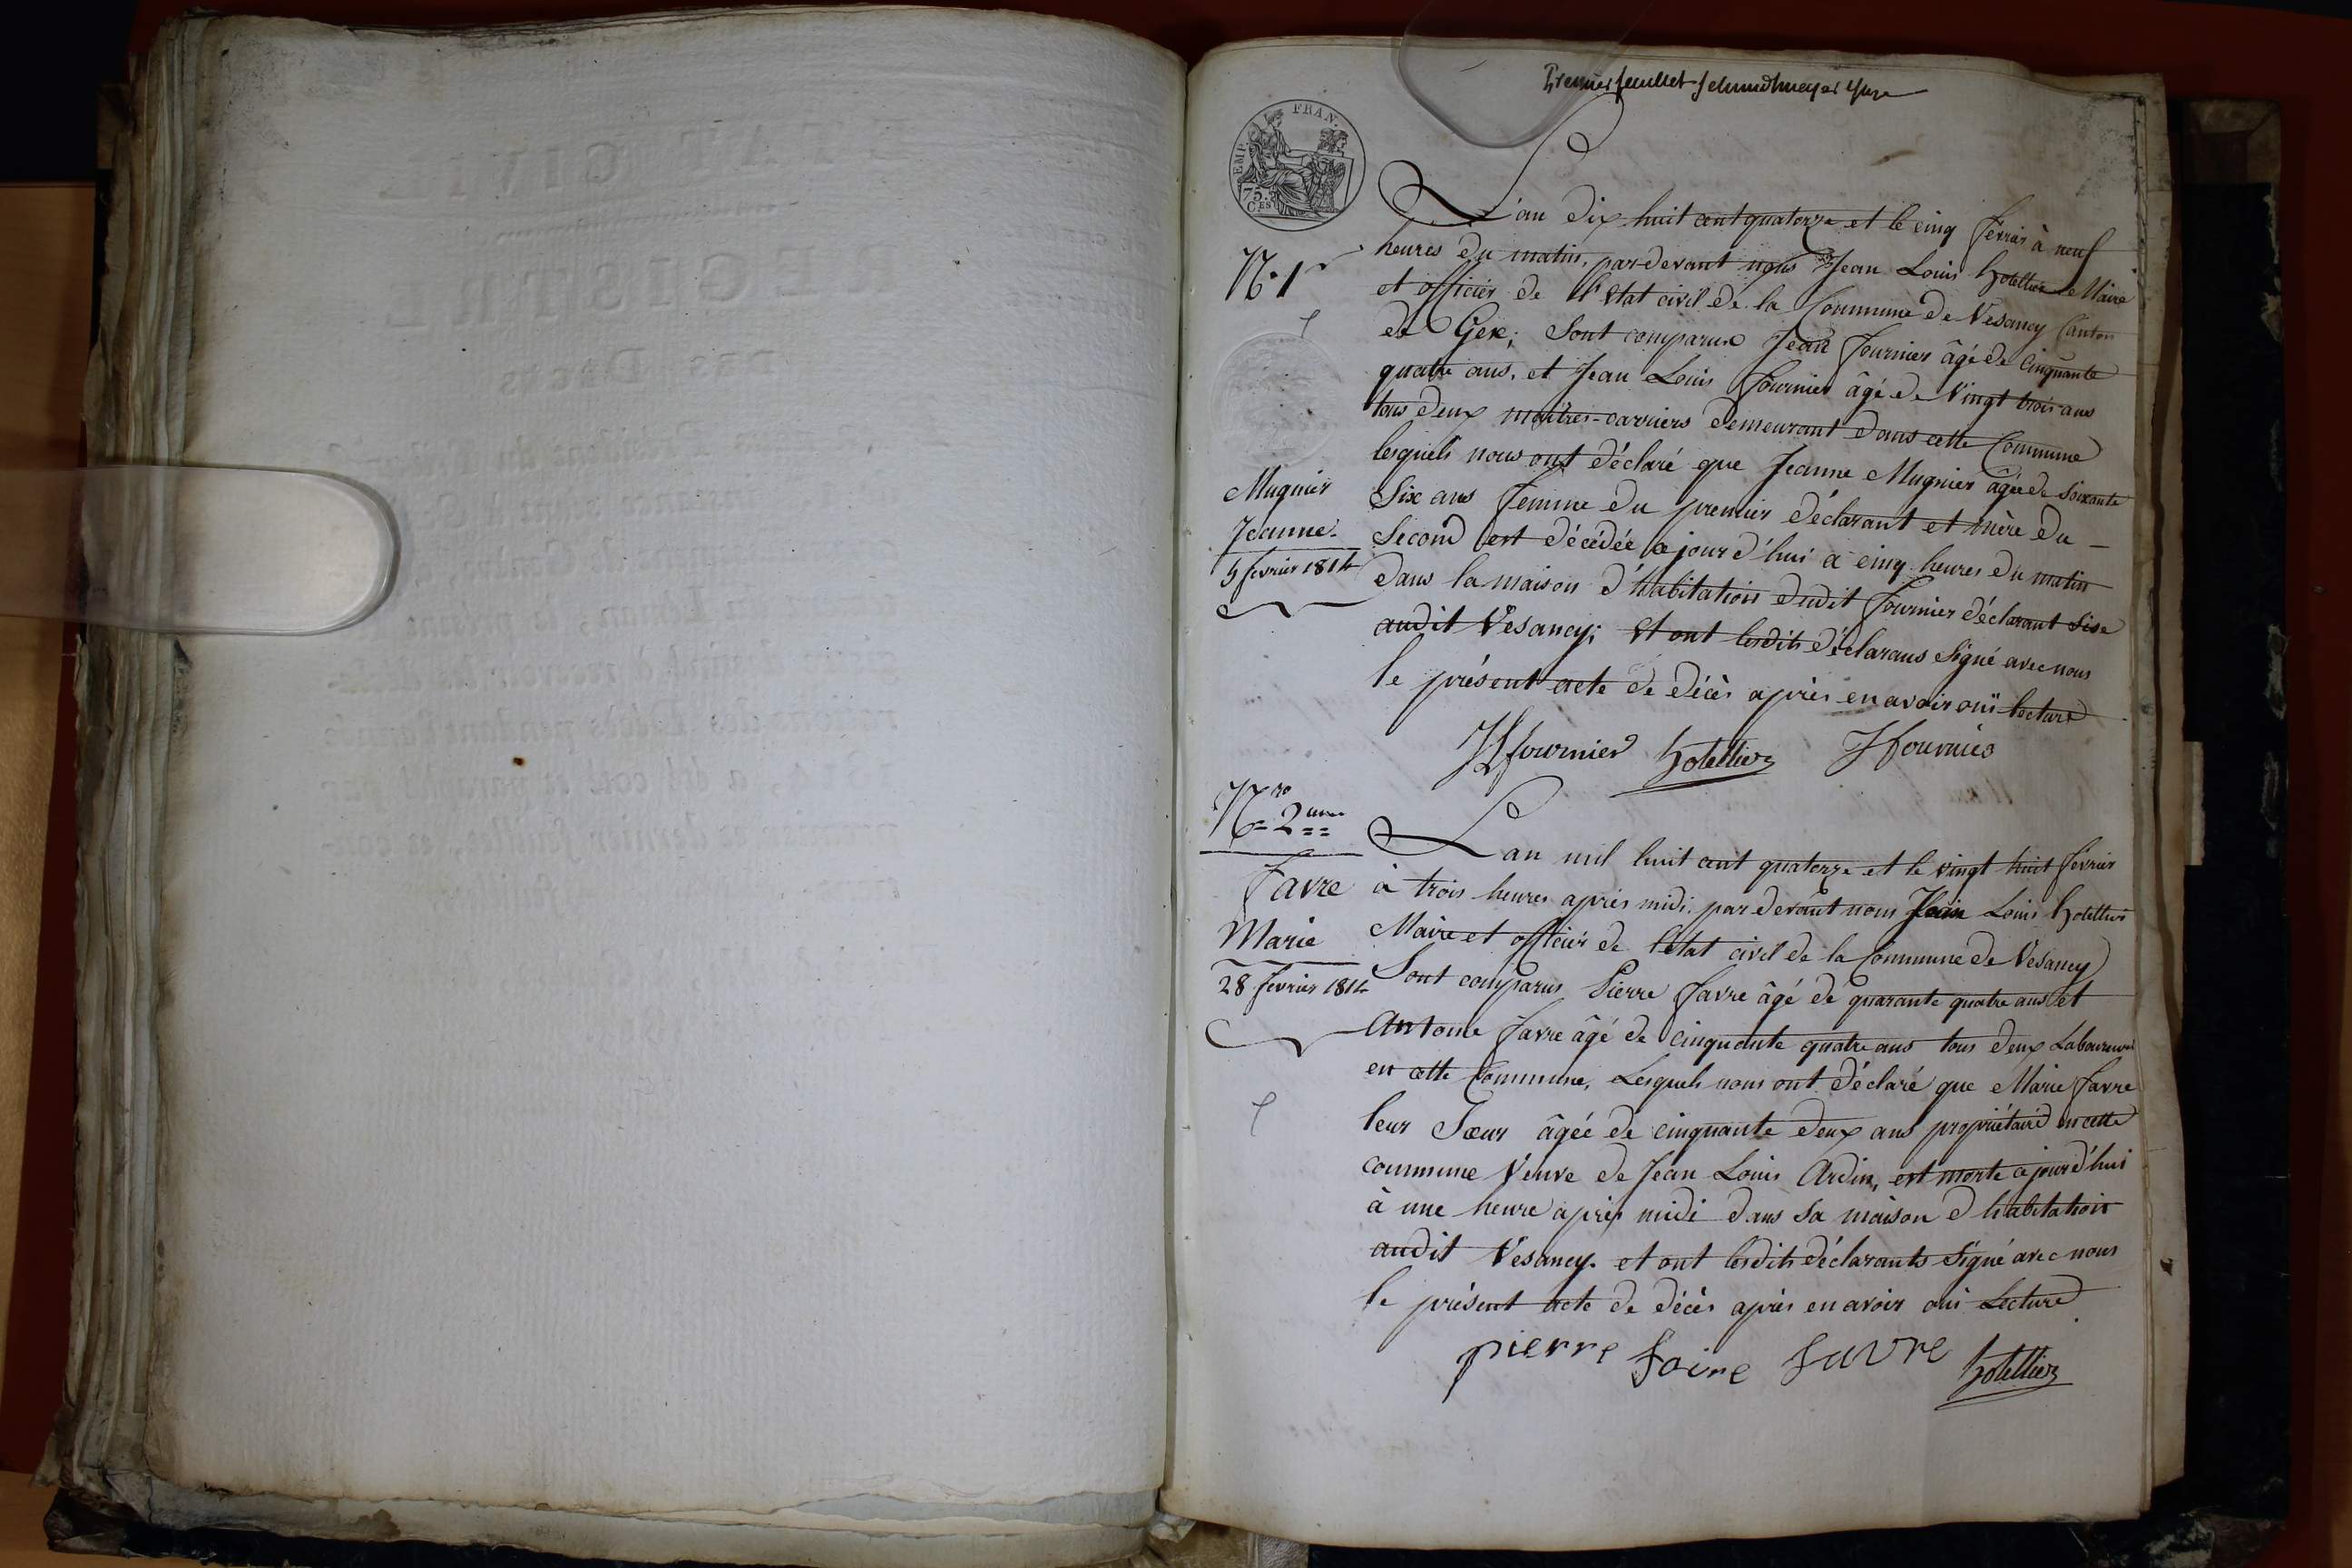 Premier feuillet Schmidtmeyer Juge
EMP. FRAN.
75. CES
L'an dix huit cent quatorze et le cinq fevrier à neuf
N.o 1er
heures du matin, par-devant nous Jean Louis hotellier Maire
et officier de l'etat civil de la Commune de Vesancy Canton
de Gex; Sont comparus Jean fournier âgé de Cinquante
quatre ans, et Jean Louis fournier âgé de Vingt trois ans
tous deux maitres-carriers demeurant dans cette Commune
lesquels nous ont déclaré que Jeanne Mugnier âgée de Soixante
Mugnier
Jeanne.
5 fevrier 1814
Six ans femme du premier déclarant et mère du
Second est décédée cejourd'hui à cinq heures du matin
dans la maison d'habitation dudit fournier déclarant Sise
audit Vesancy; Et ont lesdits déclarans Signé avec nous
le présent acte de décès après en avoir ouï lecture
JLfournier hotellier Jfournier
Nro 2eme
L'an mil huit cent quatorze et le vingt huit fevrier
Favre
Marie
28 fevrier 1814
à trois heures après midi, par devant nous Jean Louis hotellier
Maire et officier de l'etat civil de la Commune de Vesancy
Sont comparus Pierre favre âgé de quarante quatre ans et
Antoine favre âgé de cinquante quatre ans tous deux Laboureurs
en cette Commune, Lesquels nous ont déclaré que Marie favre
leur Sœur âgée de cinquante deux ans propriétaire en cette
commune Veuve de Jean Louis Ardin, est morte cejourd'hui
à une heure après midi dans sa maison d'habitation
audit Vesancy. et ont lesdits déclarants Signé avec nous
le présent acte de décès après en avoir oui Lecture.
pierre favre favre hotellier